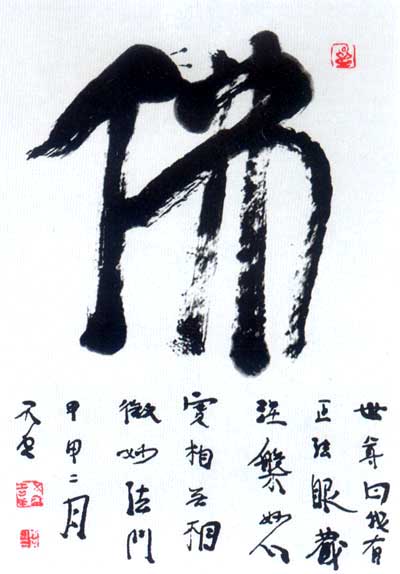 佛
世尊曰我有
正法眼藏
涅槃妙心
實相无相
微妙法门
甲申二月